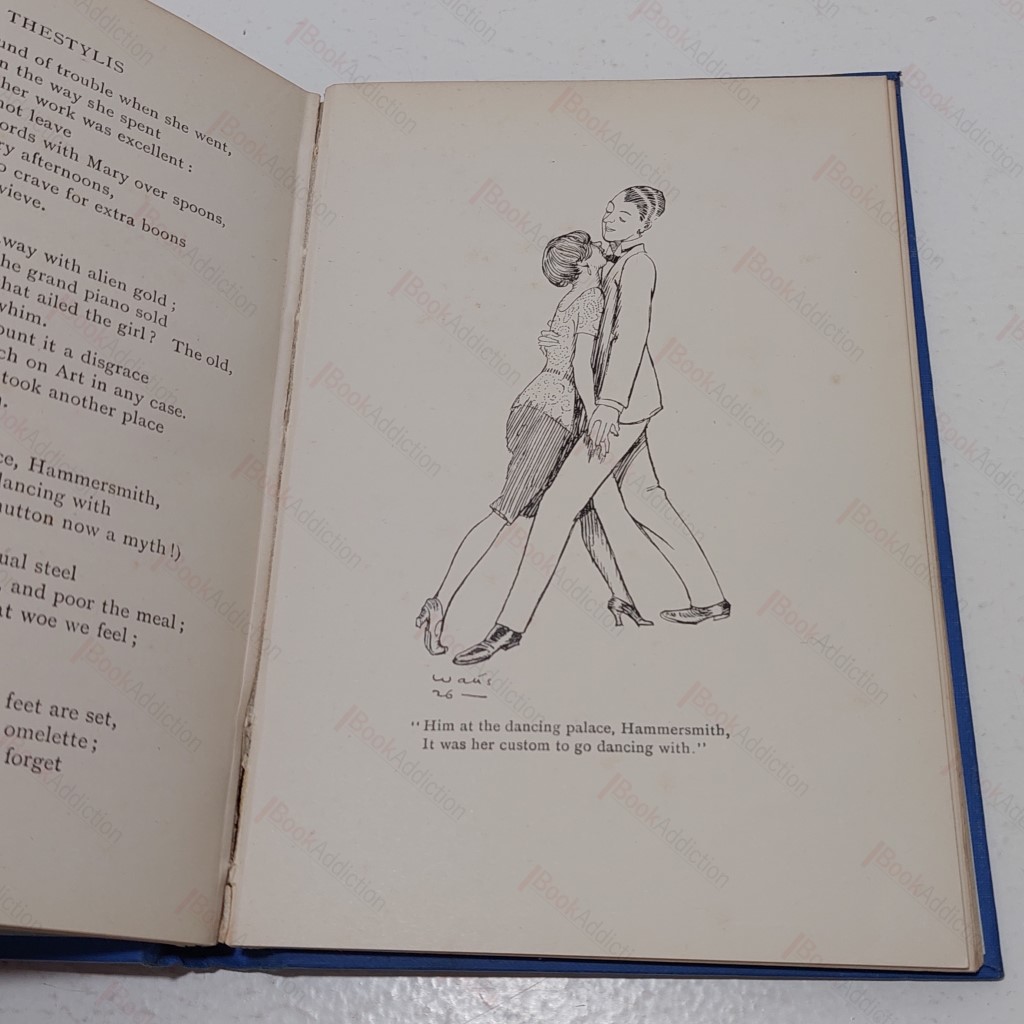 THESTYLIS
und of trouble when she went,
n the way she spent
her work was excellent :
not leave
ords with Mary over spoons,
ry afternoons,
o crave for extra boons
vieve.
way with alien gold ;
he grand piano sold
hat ailed the girl ? The old,
whim.
ount it a disgrace
ch on Art in any case.
took another place
ce, Hammersmith,
dancing with
utton now a myth !)
ual steel
, and poor the meal ;
at woe we feel ;
feet are set,
omelette ;
forget
26 —
“Him at the dancing palace, Hammersmith,
It was her custom to go dancing with.”
BookAddiction